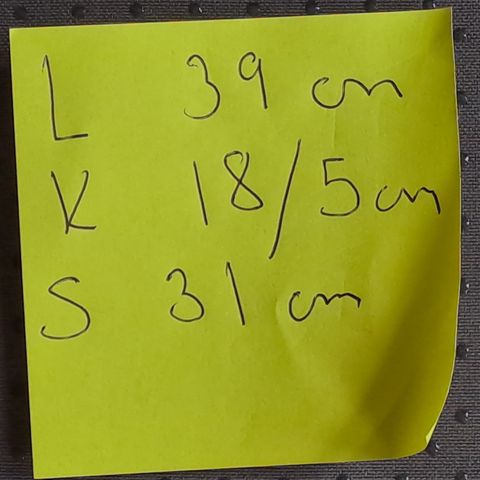 L 39 cm
K 18/5cm
S 31 cm